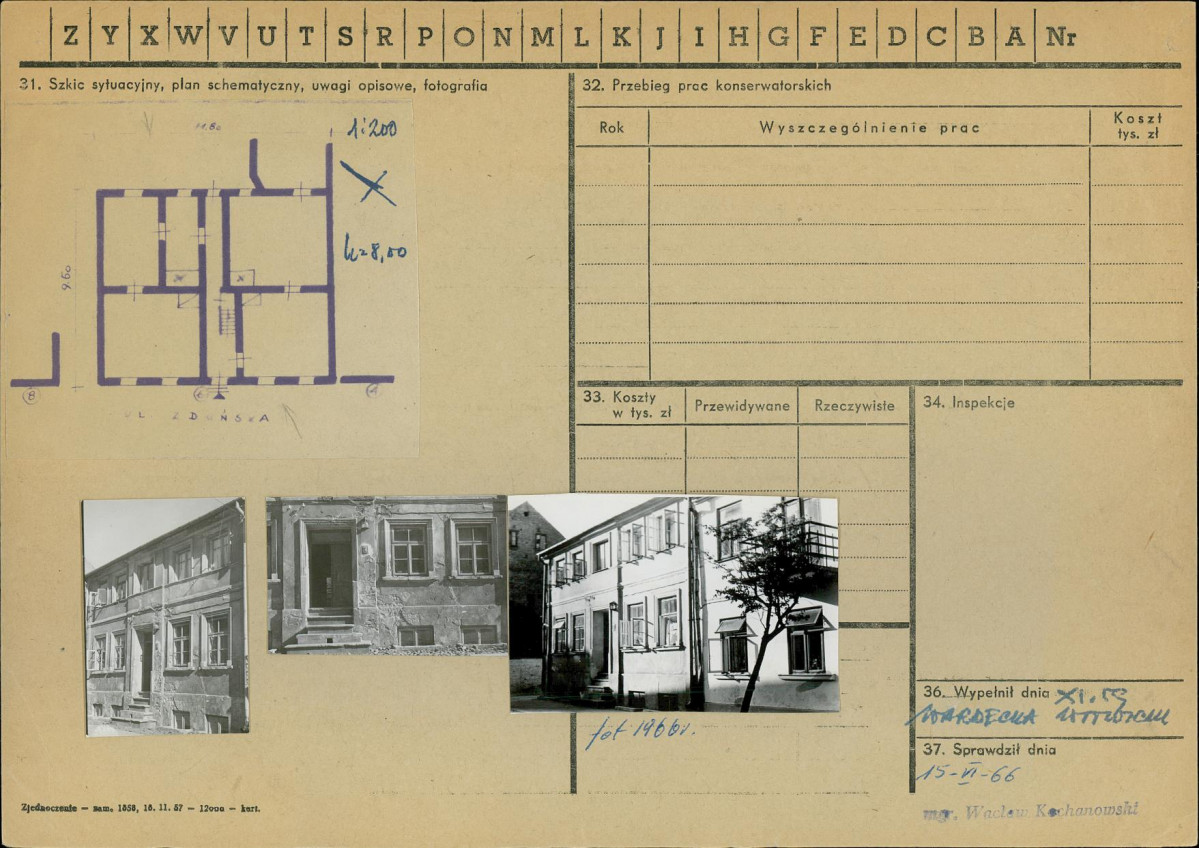 Z Y X W V U T S R P O N M L K J I H G F E D C B A Nr
31. Szkic sytuacyjny, plan schematyczny, uwagi opisowe, fotografia
11.80
1:200
h=8,00
9.60
8
6
4
UL. ZDUŃSKA
32. Przebieg prac konserwatorskich
Rok
Wyszczególnienie prac
Koszt
tys. zł
33. Koszty
w tys. zł
Przewidywane
Rzeczywiste
34. Inspekcje
fot 1966r.
36. Wypełnił dnia XI.59
WARDECKA
37. Sprawdził dnia
15-VI-66
mgr. Wacław Kochanowski
Zjednoczenie — zam. 1858, 18. 11. 57 — 12000 — kart.